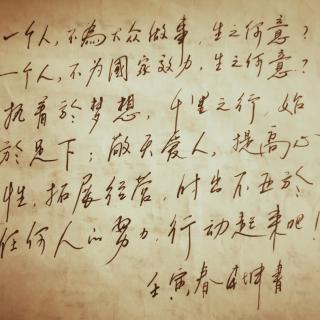 一个人，不為大众做事，生之何意？
一个人，不为國家效力，生之何意？
执着於梦想，千里之行，始
於足下；敬天爱人，提高心
性，拓展经营，付出不亚於
任何人的努力，行动起来吧！
壬寅春